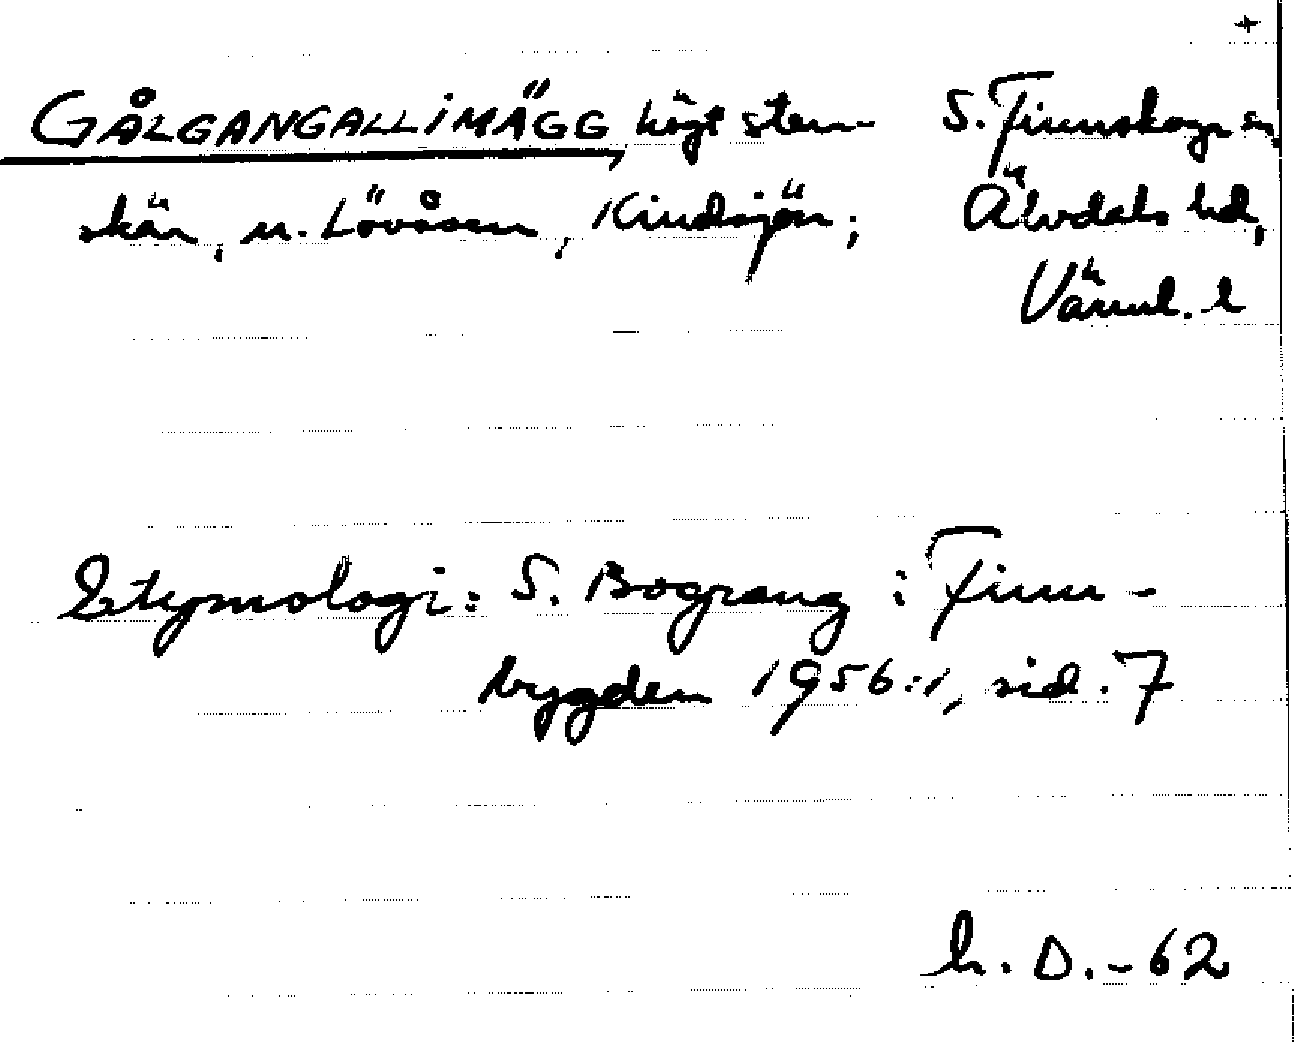 +
GÅLGANGALLIMÄGG, högt sten-
skär, n. Lövåsen, Kindsjön;
S. Finnskoga sn,
Älvdals hd,
Värml. l
Etymologi: S. Bograng i Finn-
bygden 1956:1, sid. 7
h. D. - 62